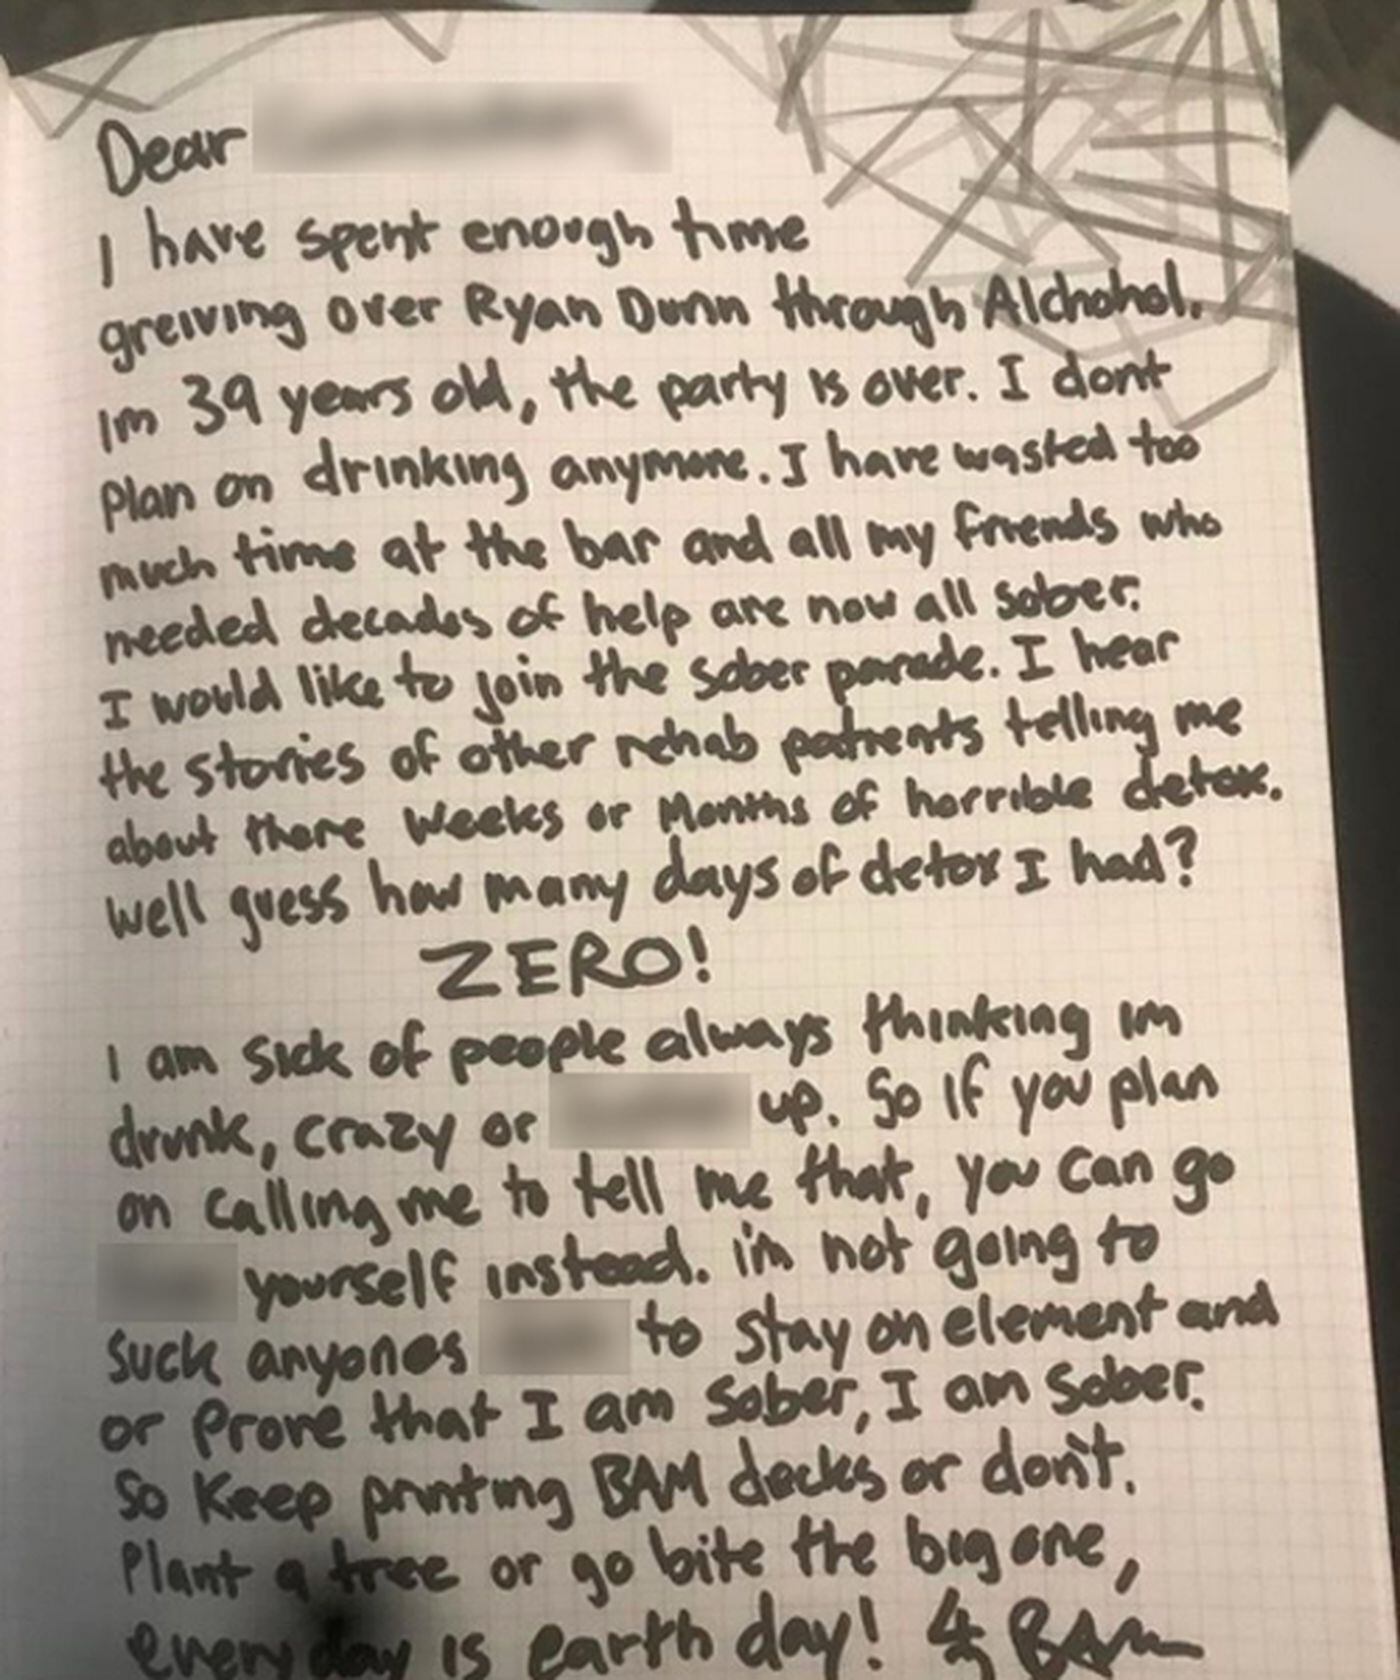 Dear
I have spent enough time
greiving over Ryan Dunn through Alchohol.
Im 39 years old, the party is over. I dont
plan on drinking anymore. I have wasted too
much time at the bar and all my friends who
needed decades of help are now all sober.
I would like to join the sober parade. I hear
the stories of other rehab patients telling me
about there weeks or Months of horrible detox.
well guess how many days of detox I had?
ZERO!
I am sick of people always thinking im
drunk, crazy or up. So if you plan
on calling me to tell me that, you can go
yourself instead. i'm not going to
suck anyones to stay on element and
or prove that I am sober, I am sober.
So Keep printing BAM decks or don't.
Plant a tree or go bite the big one,
every day is earth day! BAM